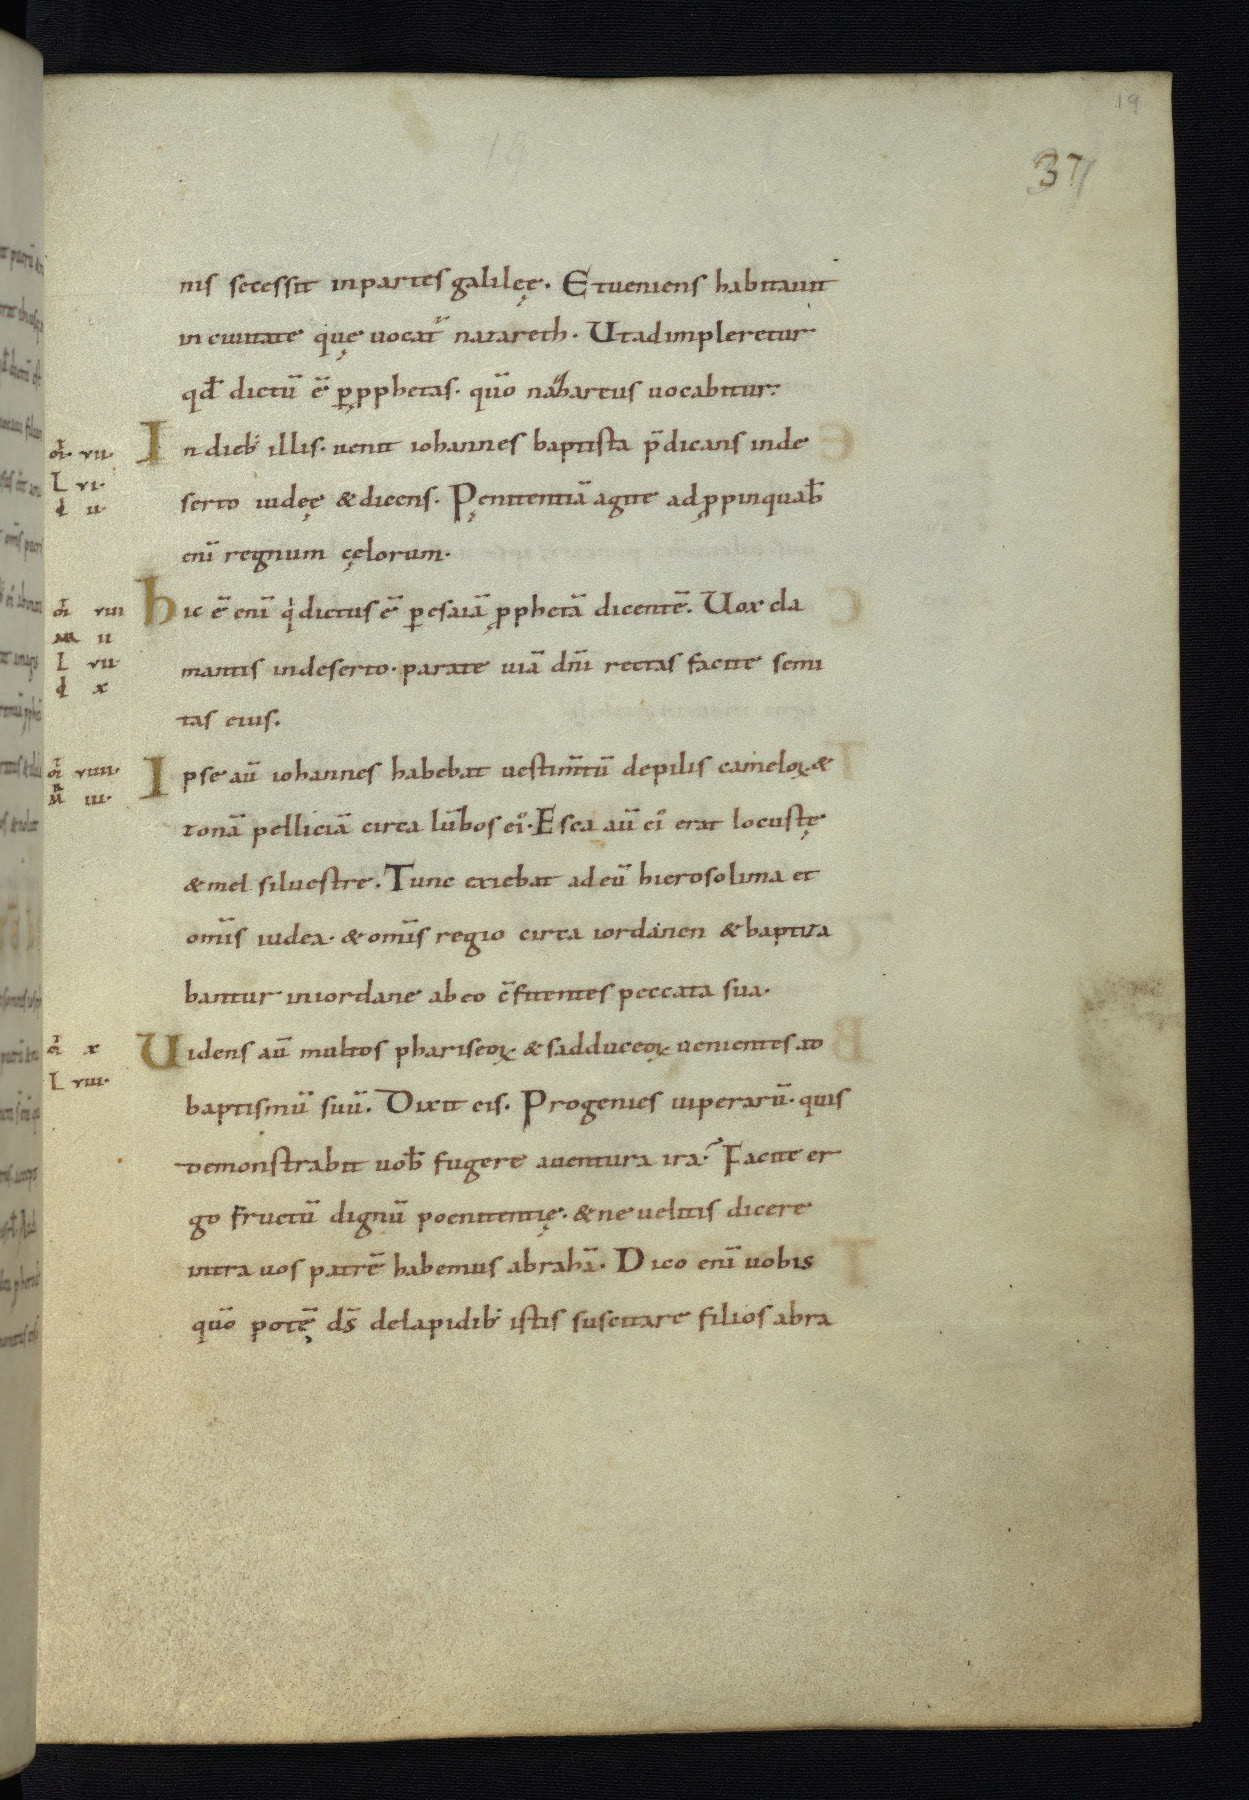 19
37
nis secessit in partes galileę. Et ueniens habitauit
in ciuitate quę uocat᷑ nazareth. Ut adimpleretur
qđ dictū ē ꝑ ꝓphetas. quō nazareus uocabitur.
In dieb; illis. uenit iohannes baptista p̄dicans in de
serto iudeę & dicens. Pęnitentiā agite adꝓpinquab̄
enī regnum cęlorum.
hic ē enī qͥ dictus ē ꝑ esaiā ꝓphetā dicentē. Uox cla
mantis in deserto. parate uiā dn̄i rectas facite semi
tas eius.
Ipse aū iohannes habebat uestim̄tū de pilis cameloꝝ. &
zonā pelliciā circa lūbos eiꝰ. Esca aū eiꝰ erat locustę
& mel siluestre. Tunc exiebat ad eū hierosolima et
om̄is iudea. & om̄is regio circa iordanen & baptiza
bantur in iordane ab eo c̄fitentes peccata sua.
Uidens aū multos phariseoꝝ & sadduceoꝝ uenientes ad
baptismū suū. Dixit eis. Progenies uiperarū. quis
demonstrabit uob̄ fugere a uentura ira? Facite er
go fructū dignū poenitentię. & ne uelitis dicere
intra uos patrē habemus abrahā. Dico enī uobis
quō potē ds̄ de lapidib; istis suscitare filios abra
vii.
L vi.
ii.
viii
ii
L vii.
x
viiii.
iii.
x
L viii.